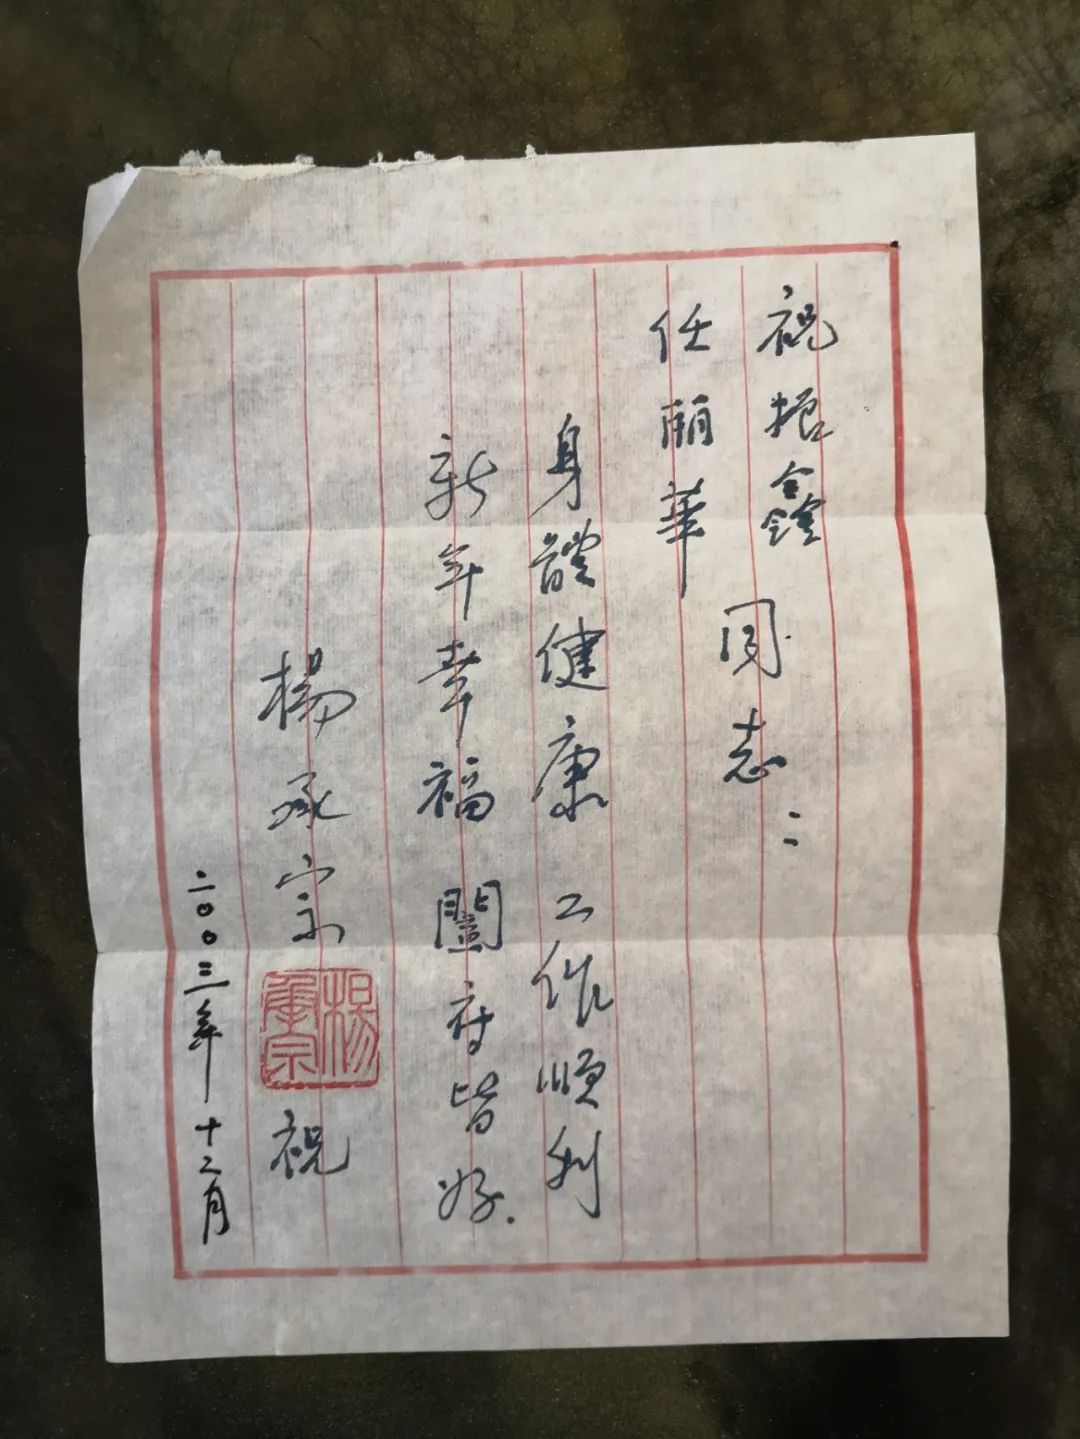 祝振鑫
任丽華
同志：
身體健康 工作順利
新年幸福 闔府皆好.
楊承宗 祝
楊承宗
二00三年十二月